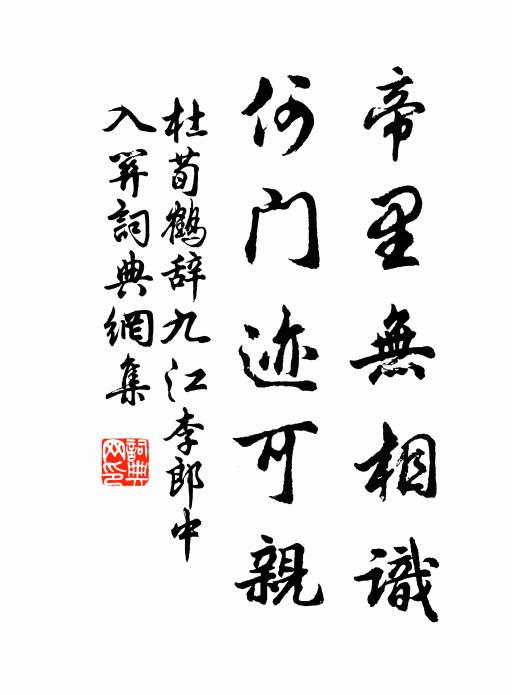 帝里無相識
何门迹可親
杜荀鶴辞九江李郎中
入関詞典網集
詞典网印